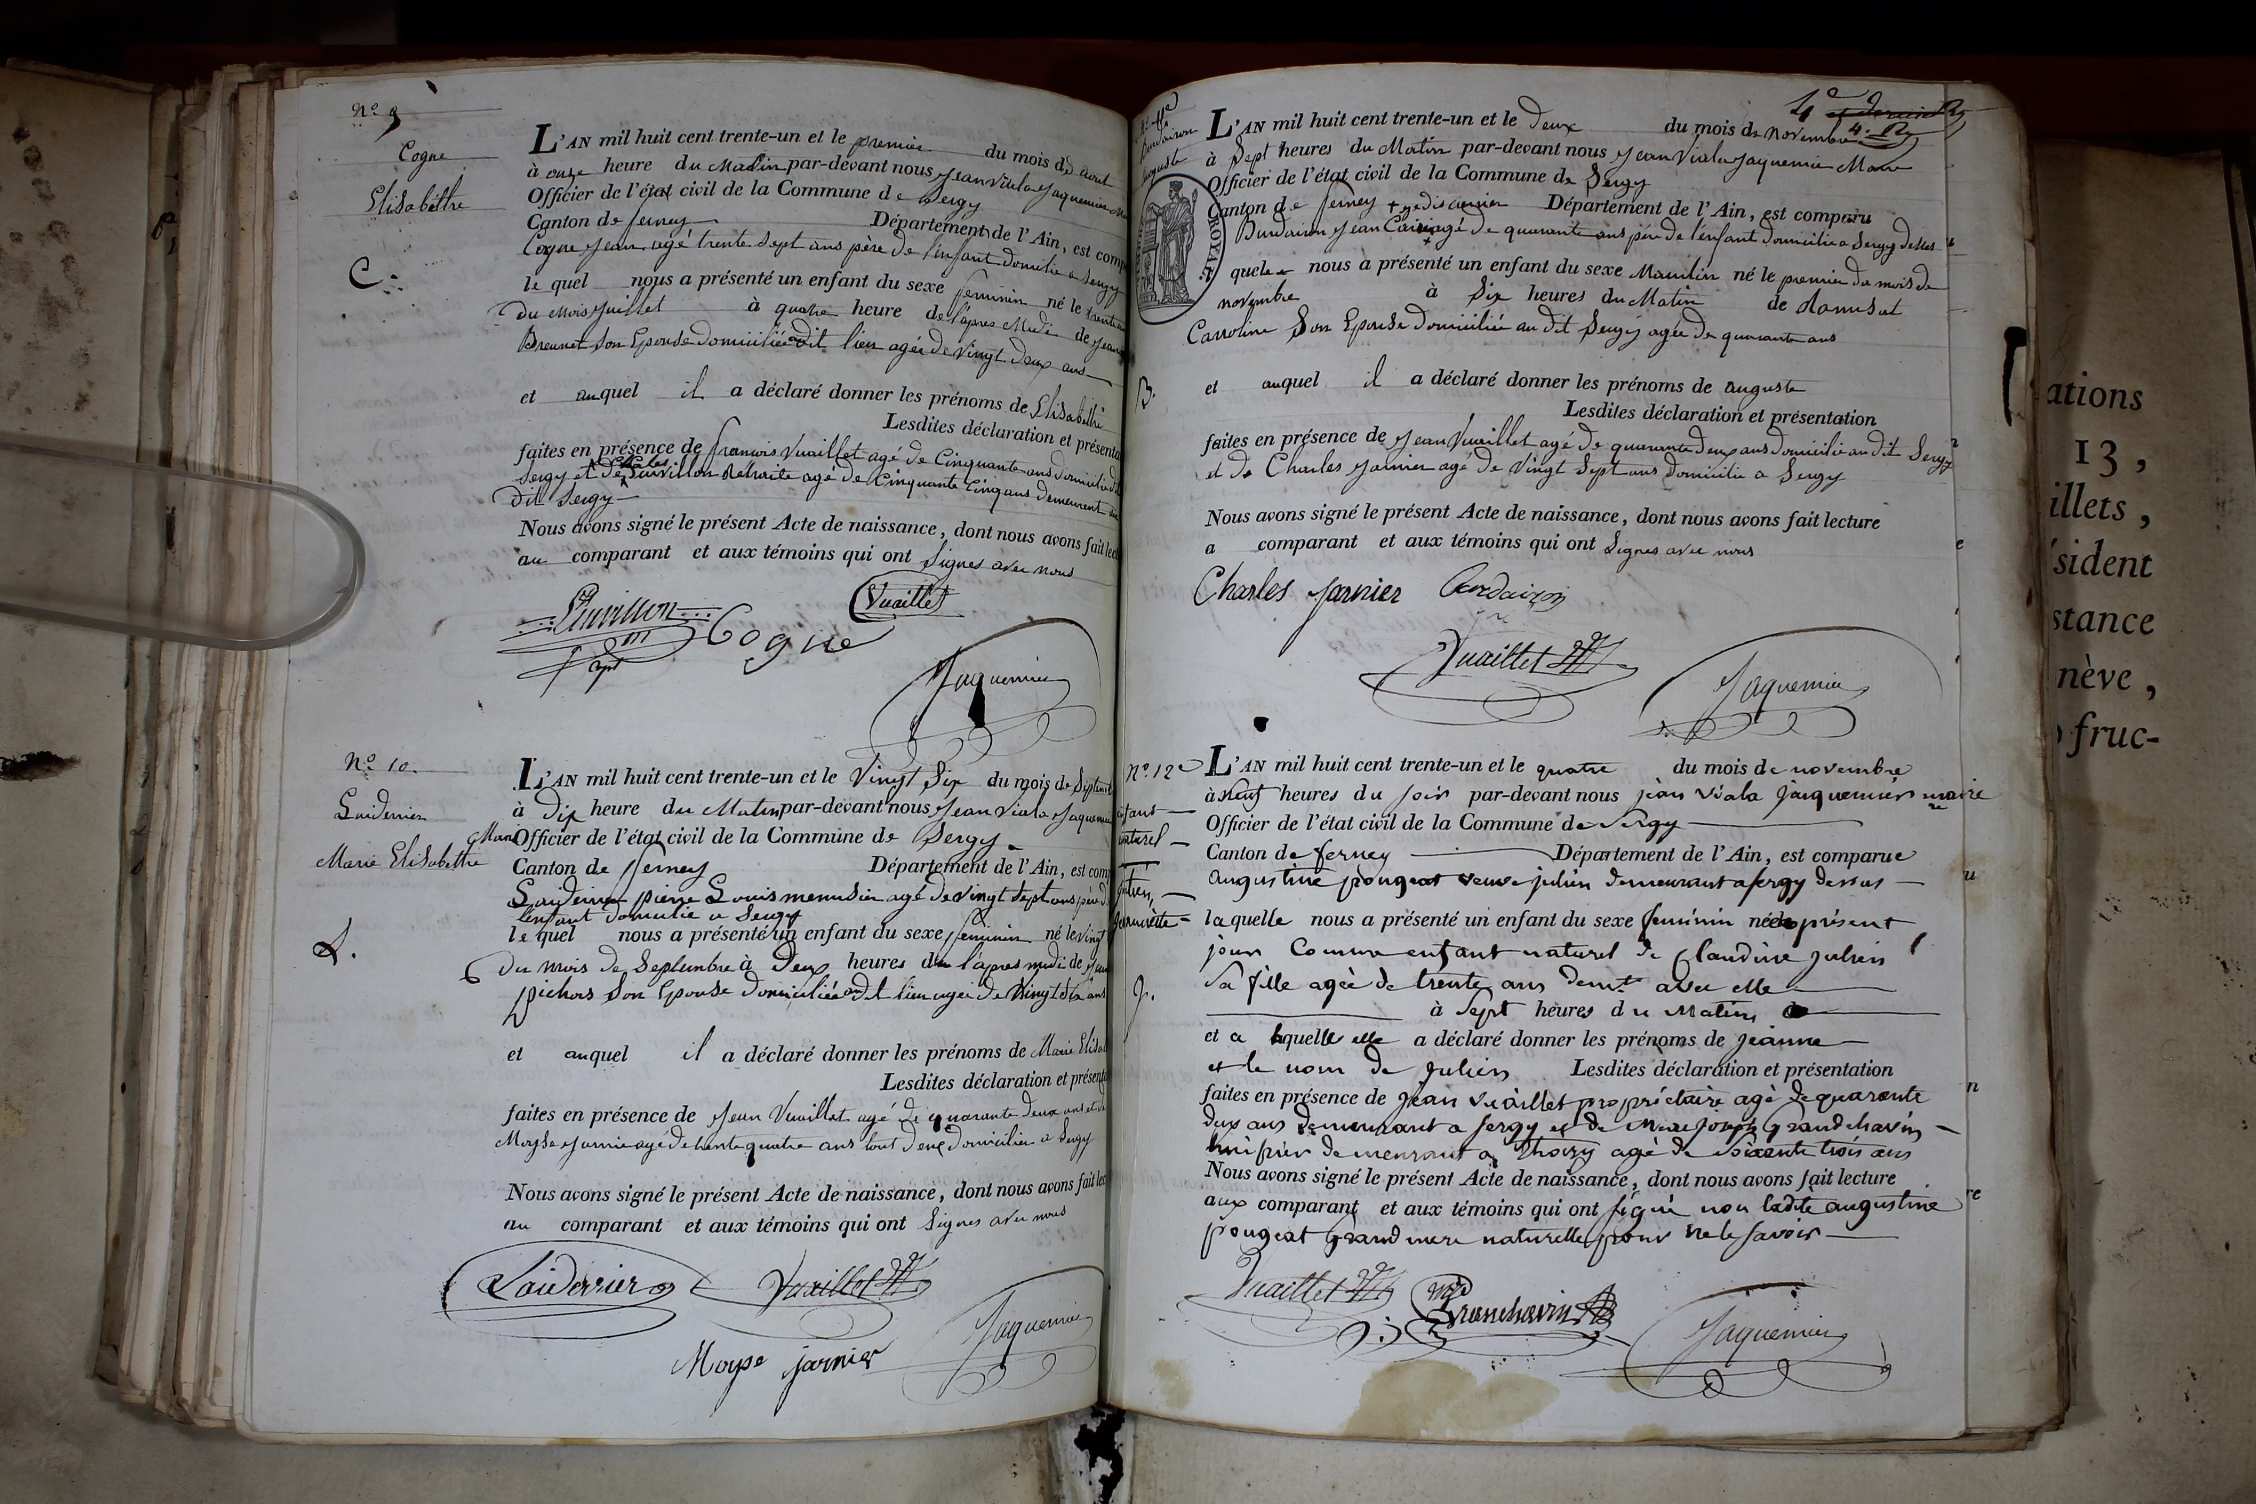 N.º 9
Cogne
Elisabéthe
C.
L'AN mil huit cent trente-un et le premier du mois de aout
à onze heure du Matin par-devant nous Jean Viala Jaquemier
Officier de l'état civil de la Commune de Sergy
Canton de ferney Département de l'Ain, est comp
Cogne Jean agé trente sept ans père de l'enfant domicilié a Sergy
le quel nous a présenté un enfant du sexe feminin né le trente
du mois Juillet à quatre heure de l'apres Midi de
Brennet son Epouse domiciliée au dit lieu agée de vingt deux ans
et auquel il a déclaré donner les prénoms de Elisabéthe
Lesdites déclaration et présenta
faites en présence de francois Vuaillet agé de Cinquante ans domicilié
Sergy et de Retraite agé de Cinquante Cinq ans demeurant au
dit Sergy
Nous avons signé le présent Acte de naissance, dont nous avons fait lect
au comparant et aux témoins qui ont signés avec nous
Vuaillet
Cogne
Jaquemier
N.º 10.
Laiderrier
Marie Elisabethe
L.
L'AN mil huit cent trente-un et le Vingt Six du mois de Septem
à Dix heure du Matin par-devant nous Jean Viala Jaquemier
Maire Officier de l'état civil de la Commune de Sergy
Canton de ferney Département de l'Ain, est comp
Laiderrier pierre Louis menusier agé de vingt sept ans père d
l'enfant domicilié a Sergy
le quel nous a présenté un enfant du sexe feminin né le vingt
du mois de Septembre à Deux heures de l'apres midi de
pichors son Epouse domiciliée au dit lieu agée de Vingt Six ans
et auquel il a déclaré donner les prénoms de Marie Elisab
Lesdites déclaration et présenta
faites en présence de Jean Vuaillet agé de quarante deux ans et de
Moyse Jarnier agé de trente quatre ans tout deux domiciliés a Sergy
Nous avons signé le présent Acte de naissance, dont nous avons fait lec
au comparant et aux témoins qui ont signés avec nous
Laiderrier Vuaillet
Jaquemier
Moyse jarnier
4e
4.
Burdairon
auguste
ROYAL
B.
L'AN mil huit cent trente-un et le Deux du mois de novembre
à Sept heures du Matin par-devant nous Jean Viala Jaquemier Maire
Officier de l'état civil de la Commune de Sergy
Canton de ferney Département de l'Ain, est comparu
Burdairon Jean agé de quarante ans père de l'enfant domicilié a Sergy dessus
quel nous a présenté un enfant du sexe Masculin né le premier du mois de
novembre à Six heures du Matin de
Carroline son Epouse domiciliée au dit Sergy agée de quarante ans
et auquel il a déclaré donner les prénoms de auguste
Lesdites déclaration et présentation
faites en présence de Jean Vuaillet agé de quarante deux ans domicilié au dit Sergy
et de Charles Jarnier agé de Vingt Sept ans domicilié a Sergy
Nous avons signé le présent Acte de naissance, dont nous avons fait lecture
a comparant et aux témoins qui ont signés avec nous
Charles Jarnier Burdairon
Vuaillet
Jaquemier
N.º 12
naturel
julien,
jeannette
J.
L'AN mil huit cent trente-un et le quatre du mois de novembre
à neuf heures du soir par-devant nous jean viala jaquemier maire
Officier de l'état civil de la Commune de Sergy
Canton de ferney Département de l'Ain, est comparue
augustine pougeat veuve julien demeurant a sergy dessus
laquelle nous a présenté un enfant du sexe feminin né présent
jour comme enfant naturel de Claudine julien
sa fille agée de trente ans demt avec elle
à Sept heures du matin
et a laquelle elle a déclaré donner les prénoms de jeanne
et le nom de julien Lesdites déclaration et présentation
faites en présence de jean vuaillet propriétaire agé de quarante
deux ans demeurant a sergy et de Marc joseph Grandchavin
demeurant a thoiry agé de soixante trois ans
Nous avons signé le présent Acte de naissance, dont nous avons fait lecture
aux comparant et aux témoins qui ont signé non ladite augustine
pougeat Grand mere naturelle pour ne le savoir
Vuaillet
Jaquemier
ations
13,
illets,
sident
stance
nève,
fruc-